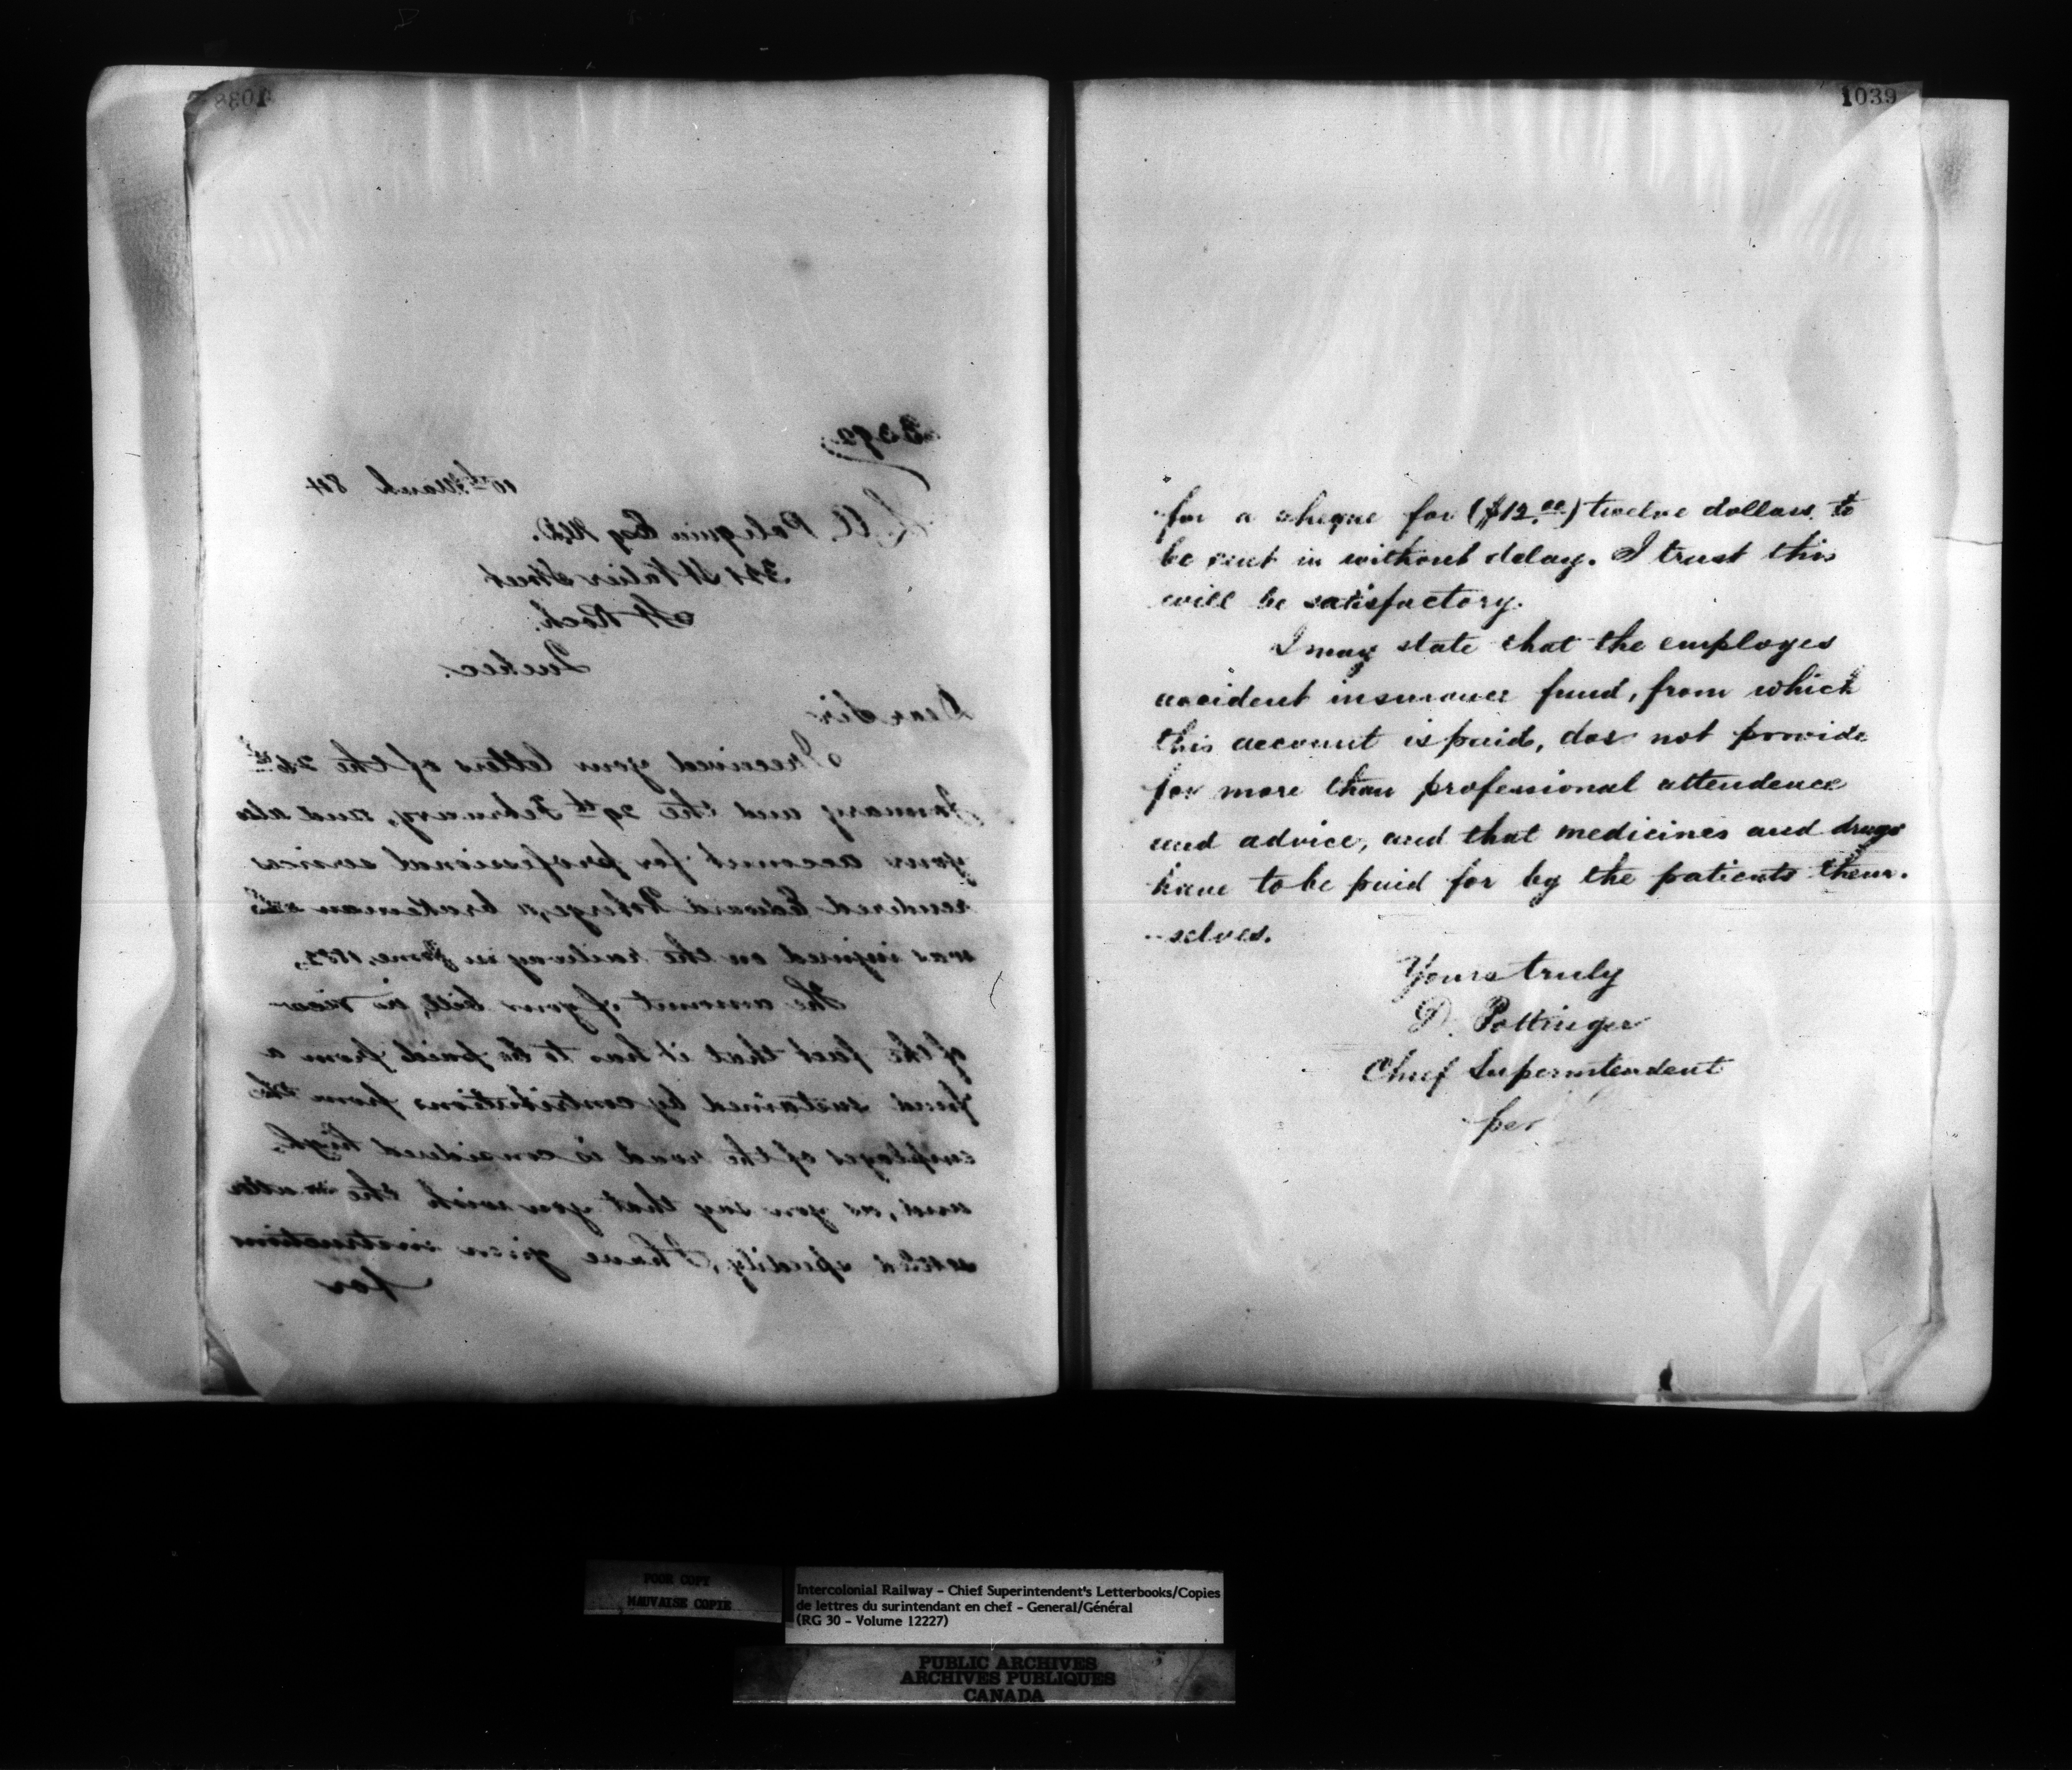 1038
3392
10th March 84
L. A. Poliquin Esq M.D.
331 St Valier Street
St Roch.
Quebec.
Dear Sir
I received your letters of the 26th
January and the 29th February, and also
your account for professional services
rendered Edward Roberge, a brakeman who
was injured on the railway in June,
The amount of your bill, in view
of the fact that it has to be paid from a
fund sustained by contributions from the
employes of the road is considered high,
and, as you say that you wish the matter
settled speedily, I have given instructions
for
1039
for a cheque for ($12.00) twelve dollars to
be sent in without delay. I trust this
will be satisfactory.
I may state that the employes
accident insurance fund, from which
this account is paid, does not provide
for more than professional attendence
and advice, and that medicines and drugs
have to be paid for by the patients them-
-selves.
Yours truly
D. Pottinger
Chief Superintendent
per
POOR COPY
MAUVAISE COPIE
Intercolonial Railway - Chief Superintendent's Letterbooks/Copies
de lettres du surintendant en chef - General/Général
(RG 30 - Volume 12227)
PUBLIC ARCHIVES
ARCHIVES PUBLIQUES
CANADA